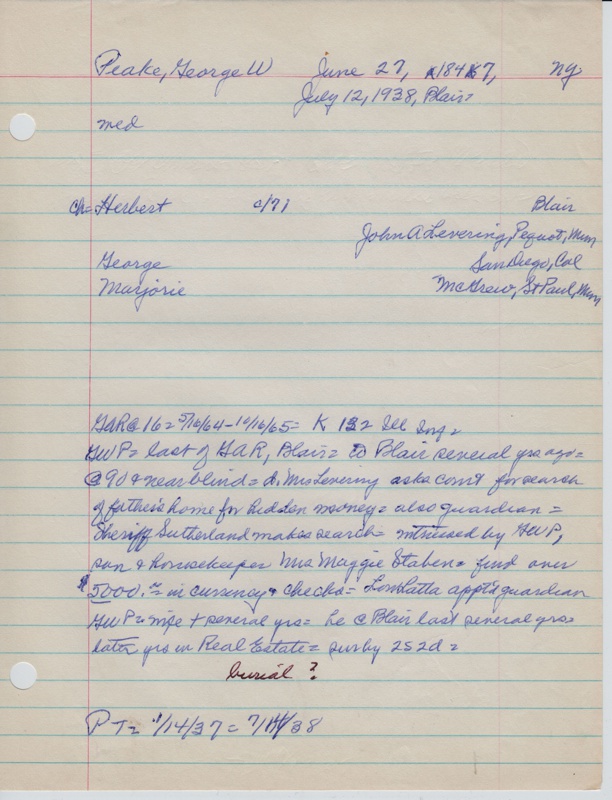 Peake, George W June 27, 1847, NY
July 12, 1938, Blair=
med
ch= Herbert c/71 Blair
John A Levering, Pequot, Minn
George San Diego, Cal
Marjorie McGrew, St Paul, Minn
GAR@16= 5/16/64-10/16/65= K 132 Ill Inf=
GWP= last of GAR, Blair= to Blair several yrs ago=
@90 & near blind= d. Mrs Levering asks court for search
of father's home for hidden money= also guardian=
Sheriff Sutherland makes search= witnessed by GWP,
son & housekeeper Mrs Maggie Staben= find over
$5000.00 in currency & checks= Tom Latta appt'd guardian
GWP= wife + several yrs= he @ Blair last several yrs=
later yrs in Real Estate= sur by 2s 2d=
burial?
PT= 1/14/37= 7/14/38